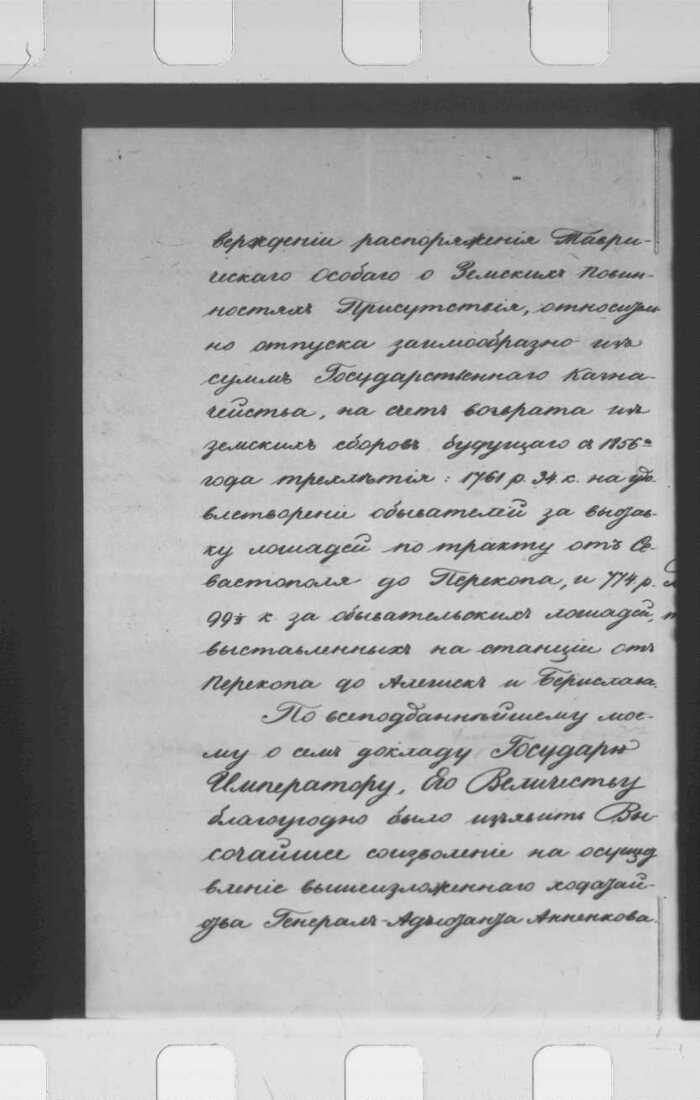 верждении распоряженія Таври-
ческаго Особаго о Земскихъ Повин-
ностяхъ Присутствія, относитель
но отпуска заимообразно изъ
суммъ Государственнаго Казна-
чейства, на счетъ возврата изъ
земскихъ сборовъ будущаго съ 1856го
года трехлѣтія: 1761 р. 34 к. на удо
влетвореніи обывателей за выстав
ку лошадей по тракту отъ Се-
вастополя до Перекопа, и 774 р.
99½ к. за обывательскихъ лошадей,
выставленныхъ на станціи отъ
Перекопа до Алешекъ и Берислава.
По всеподданнѣйшему мое-
му о семъ докладу Государю
Императору, Его Величеству
благоугодно было изъявить Вы-
сочайшее соизволеніе на осущест
вленіе вышеизложеннаго ходатай-
ства Генералъ-Адъютанта Анненкова.